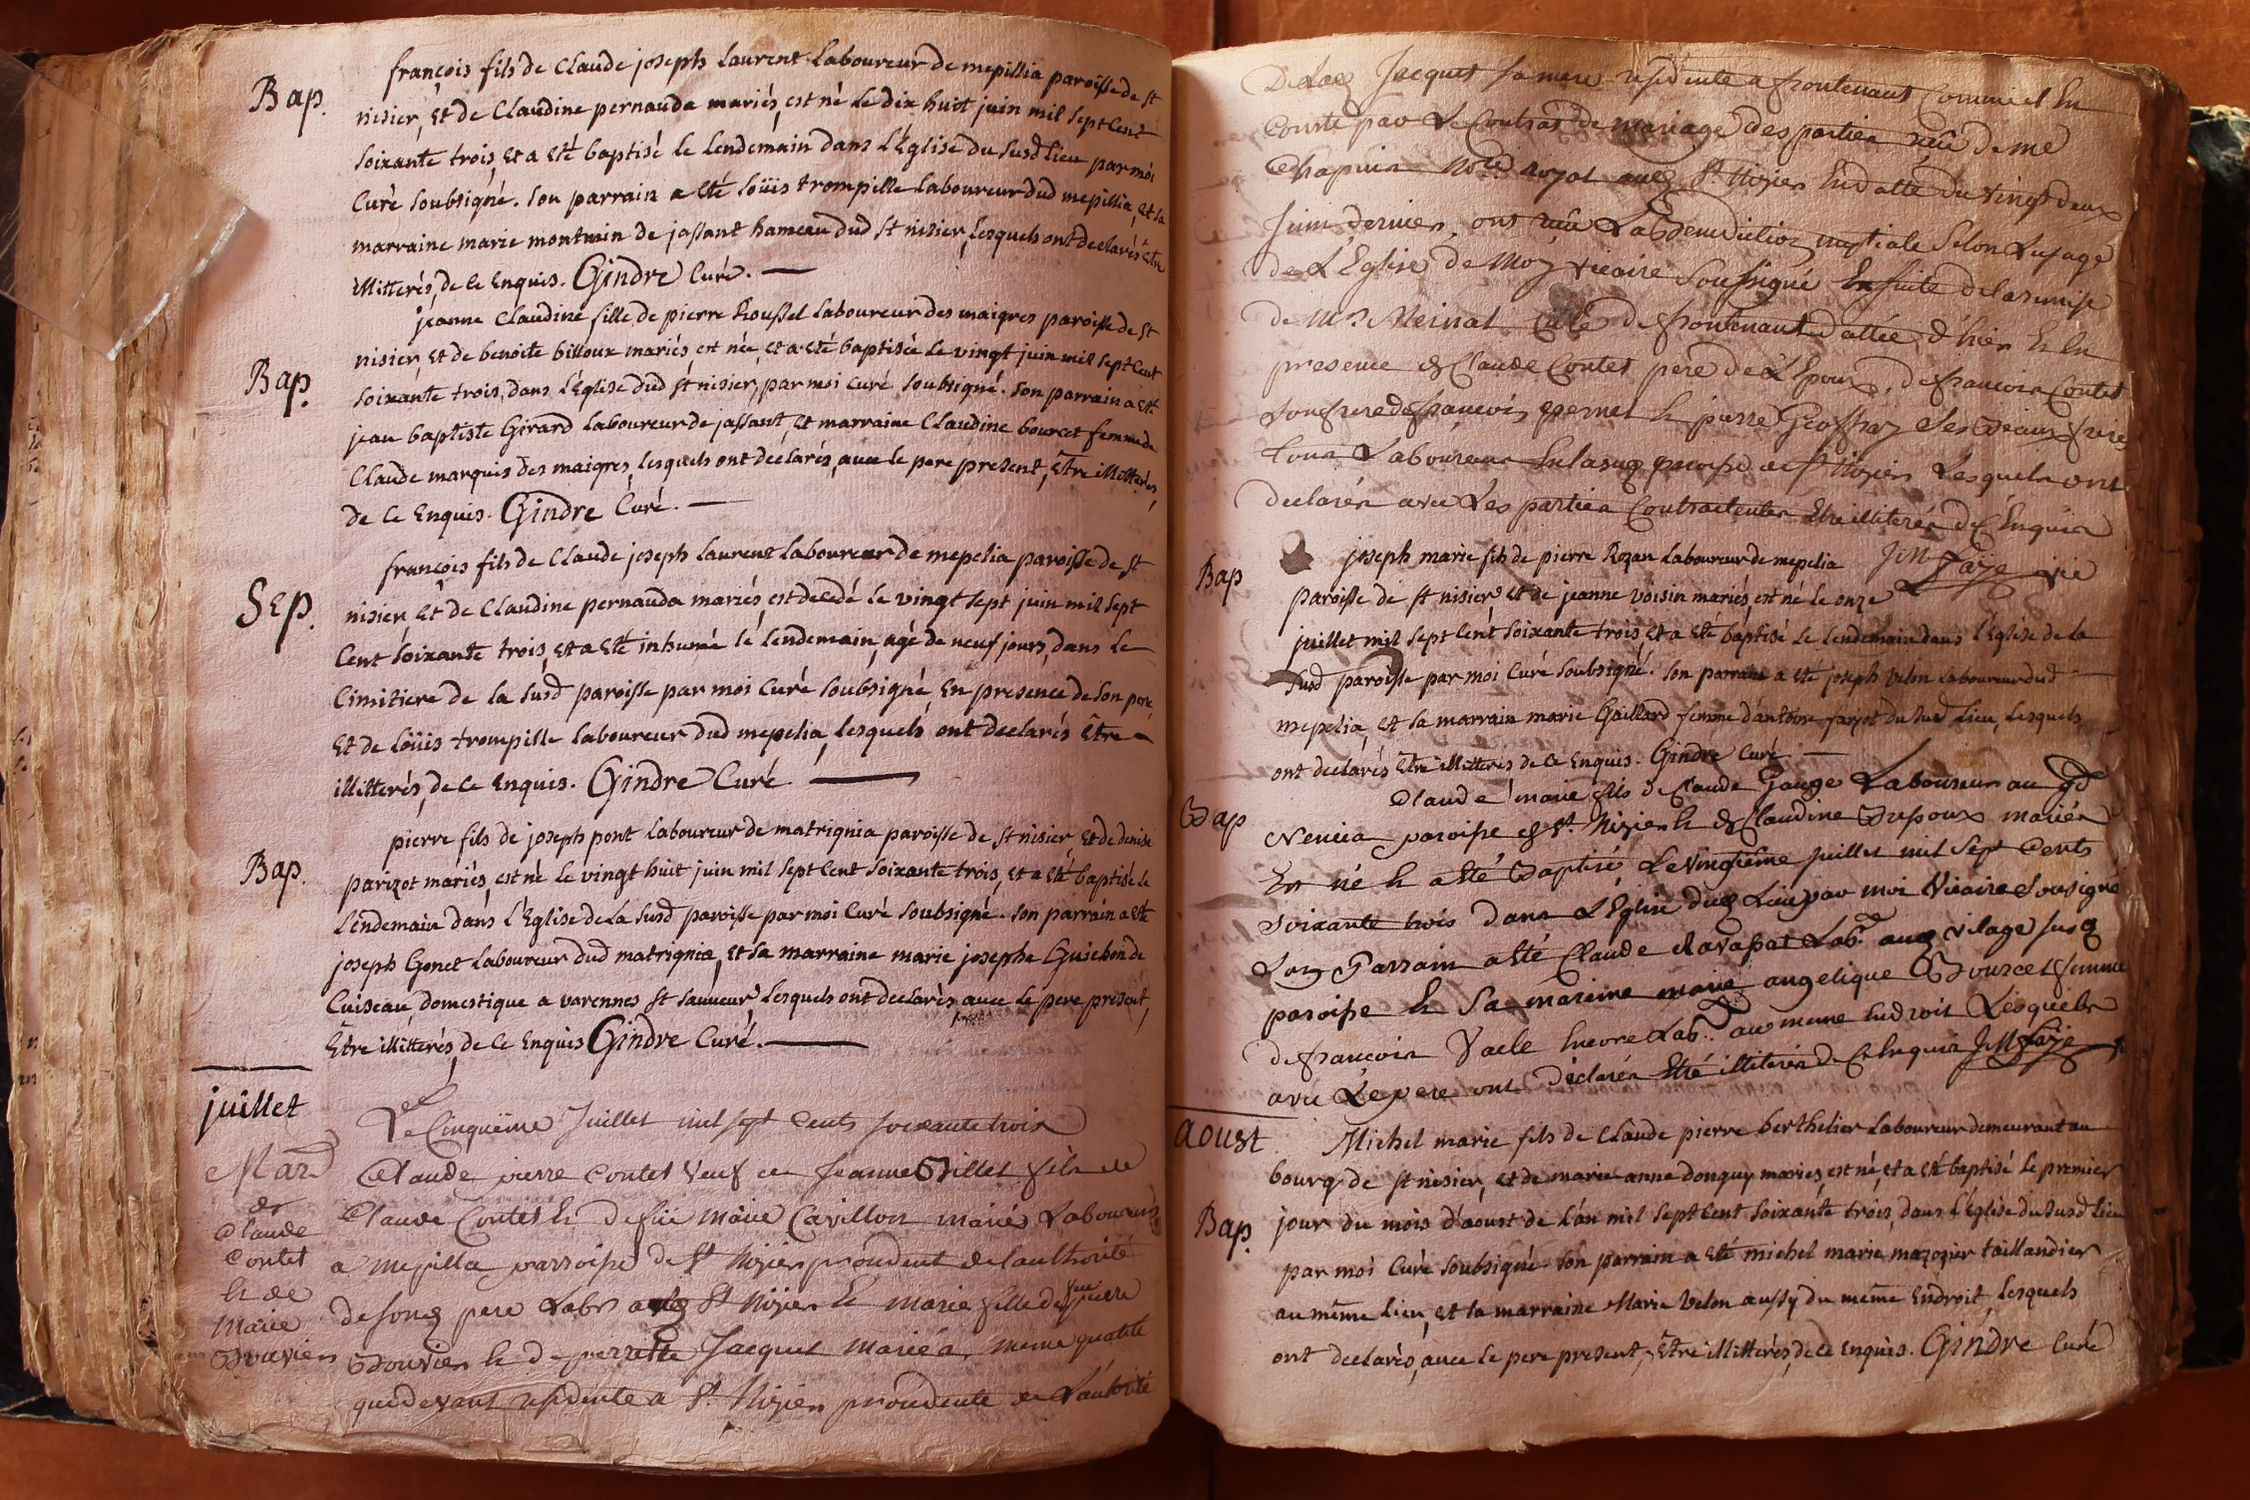 Bap.
françois fils de Claude joseph Laurent Laboureur de mepillia paroisse de St
nisier, et de Claudine pernauda mariés, est né Le dix huit juin mil sept Cent
soixante trois, et a eté baptisé le lendemain dans L'Eglise du susd Lieu par moi
Curé soubsigné. son parrain a eté Loüis trompille Laboureur dud mepillia, et sa
marraine marie montmin de jassant hameau dud St nisier, Lesquels ont declarés être
illitterés, de ce enquis. Gindre Curé.
Bap.
jeanne Claudine fille de pierre Roussel Laboureur des maigres paroisse de St
nisier, et de benoite billoux mariés est née, et a eté baptisée Le vingt juin mil sept Cent
soixante trois, dans L'Eglise dud St nisier, par moi Curé soubsigné. son parrain a eté
jean baptiste Girard Laboureur de jassant, et marraine Claudine bourcet femme de
Claude marquis des maigres, lesquels ont declarés, avec le pere present, Etre illitterés,
de ce enquis. Gindre Curé.
Sep.
françois fils de Claude joseph Laurent Laboureur de mepelia paroisse de St
nisier, et de Claudine pernauda mariés, est decedé Le vingt sept juin mil sept
Cent soixante trois, et a eté inhumé le lendemain, agé de neuf jours, dans Le
Cimitiere de la susd paroisse par moi Curé soubsigné, en presence de son pere,
et de Loüis trompille Laboureur dud mepelia, lesquels ont declarés Être
illitterés, de ce enquis. Gindre Curé
Bap.
pierre fils de joseph pont Laboureur de matrignia paroisse de St nisier, et de denise
parizot mariés, est né Le vingt huit juin mil sept Cent soixante trois, et a eté baptisé Le
Lendemain dans L'Eglise de La susd paroisse par moi Curé soubsigné. son parrain a eté
joseph Gonet Laboureur dud matrignia, et sa marraine marie josephe Guichon de
Cuiseau, domestique a varennes St sauveur, Lesquels ont declarés avec Le pere present,
Être illitterés, de ce Enquis Gindre Curé.
juillet
Le Cinquiême Juillet mil sept Cents soixante trois
Mar
de
Claude
Contet
et de
Marie
Bouvier
Claude pierre Contet veuf de Jeanne Billet fils de
Claude Contet et defüe Marie Cavillon mariés Laboureurs
a mepilla parroisse de St Nizier procedent de lauthorité
de son pere Labr St Nizier et marie fille de feu pierre
Bouvier et de pierrette Jacquet mariés, meme qualité
que devant residente a St Nizier procedente de Lautorité
De Jacquet sa mere residente a frontenaut Comme il en
Conste par Le Contrat de mariage des parties reçu de me
Chapuis Nore royal St Nizier En datte du vingt deux
Juin dernier, ont reçu La Benediction nuptiale selon Lusage
de L'Eglise de Moy vicaire soussigné En suite de la remise
de Mr. Meinal Curé de frontenaut dattée d'hier Et En
presence de Claude Contet pere de L'Epoux, de francois Contet
son frere de francois pernet et pierre Geoffray ses Beaux freres
tous Laboureurs En lad paroisse de St Nizier Lesquels ont
declarés avec Les parties Contractentes Etre illiterés de Ce Enquis
JM Faÿe vic
Bap
joseph marie fils de pierre Rozan Laboureur de mepelia
paroisse de St nisier, et de jeanne voisin mariés, est né le onze
juillet mil sept Cent soixante trois, et a eté baptisé Le lendemain dans L'Eglise de la
susd paroisse par moi Curé soubsigné. son parrain a eté joseph velon Laboureur dud
mepelia, et sa marrain marie Gaillard femme d'antoine farjot du susd Lieu, Lesquels
ont declarés Etre illitterés de ce Enquis. Gindre Curé
Bap
Claude marie fils de Claude Gauge Laboureur au gd
Nencia paroisse de St. Nizier et de Claudine Brepoux mariés
Est né et a eté Baptisé Le vingtiême juillet mil sept Cents
soixante trois dans L'Eglise dud Lieu par moi Vicaire sousigné
Son Parrain a eté Claude Ravassat Labr. aud vilage susd
paroisse et sa mareine marie angelique Bourcet femme
de francois Vacle Encore Labr. au meme Endroit Lesquels
avec Le pere ont Déclarés Etré illiterés de Ce Enquis JM Faÿe
aoust
Bap.
Michel marie fils de Claude pierre berthelier Laboureur demeurant au
bourg de St nisier, et de marie anne donguy mariés, est né, et a eté baptisé Le premier
jour du mois d'aoust de L'an mil sept Cent soixante trois, dans L'Eglise du susd Lieu
par moi Curé soubsigné. son parrain a eté michel marie mazoyer taillandier
au même Lieu, et sa marraine Marie velon aussy du même Endroit, lesquels
ont declarés, avec le pere present, Etre illitterés, de ce enquis. Gindre Curé